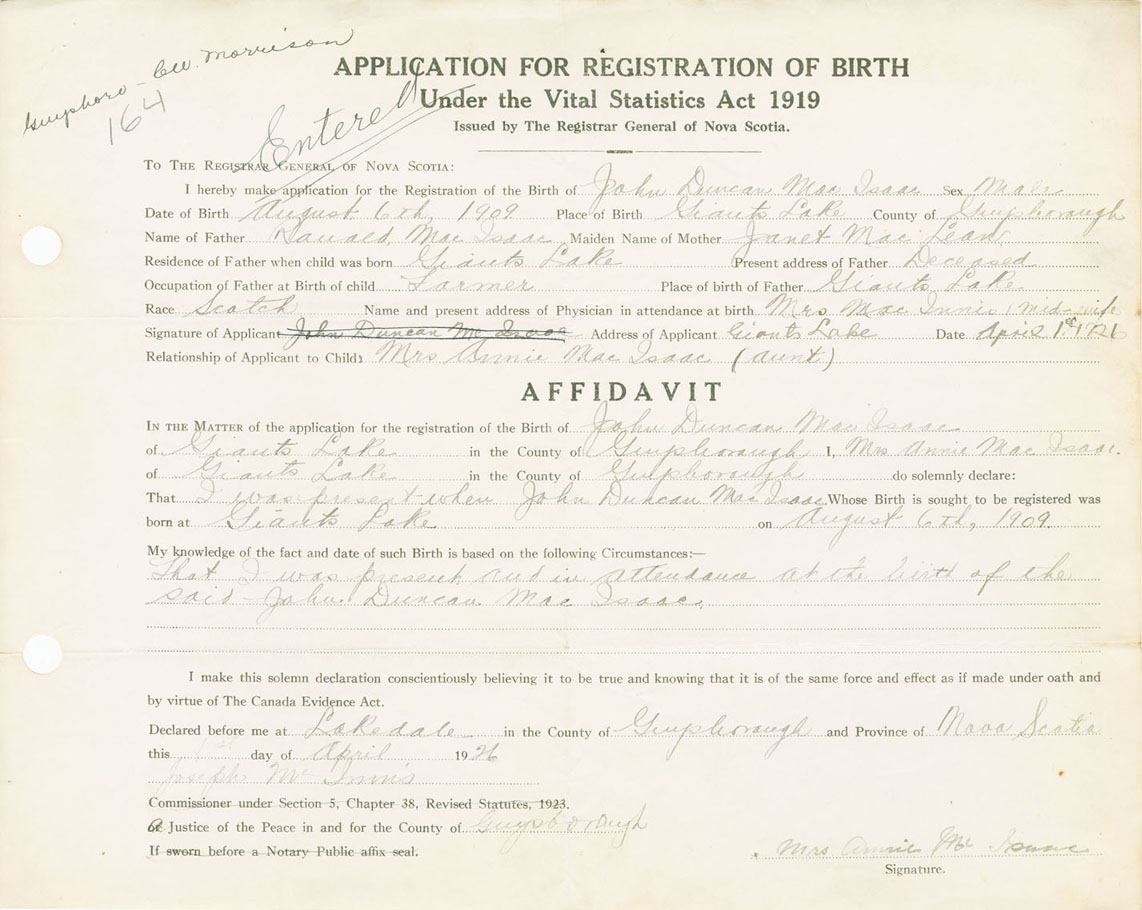 Guysboro - CW. Morrison
164
Entered
APPLICATION FOR REGISTRATION OF BIRTH
Under the Vital Statistics Act 1919
Issued by The Registrar General of Nova Scotia.
TO THE REGISTRAR GENERAL OF NOVA SCOTIA:
I hereby make application for the Registration of the Birth of John Duncan Mac Isaac Sex Male
Date of Birth August 6th, 1909 Place of Birth Giants Lake County of Guysborough
Name of Father Donald Mac Isaac Maiden Name of Mother Janet Mac Lean
Residence of Father when child was born Giants Lake Present address of Father Deceased
Occupation of Father at Birth of child Farmer Place of birth of Father Giants Lake
Race Scotch Name and present address of Physician in attendance at birth Mrs Mac Innis (mid-wife
Signature of Applicant John Duncan Mc Isaac Address of Applicant Giants Lake Date April 1st 1926
Relationship of Applicant to Child: Mrs Annie Mac Isaac (aunt)
AFFIDAVIT
IN THE MATTER of the application for the registration of the Birth of John Duncan Mac Isaac
of Giants Lake in the County of Guysborough I, Mrs Annie Mac Isaac.
of Giants Lake in the County of Guysborough do solemnly declare:
That I was present when John Duncan Mac Isaac Whose Birth is sought to be registered was
born at Giants Lake on August 6th, 1909.
My knowledge of the fact and date of such Birth is based on the following Circumstances:—
That I was present and in attendance at the birth of the
said John Duncan Mac Isaac.
I make this solemn declaration conscientiously believing it to be true and knowing that it is of the same force and effect as if made under oath and
by virtue of The Canada Evidence Act.
Declared before me at Lakedale in the County of Guysborough and Province of Nova Scotia
this 1st day of April 1926
Joseph Mc Innis
Commissioner under Section 5, Chapter 38, Revised Statutes, 1923.
Justice of the Peace in and for the County of Guysborough
If sworn before a Notary Public affix seal.
Mrs Annie Mc Isaac
Signature.